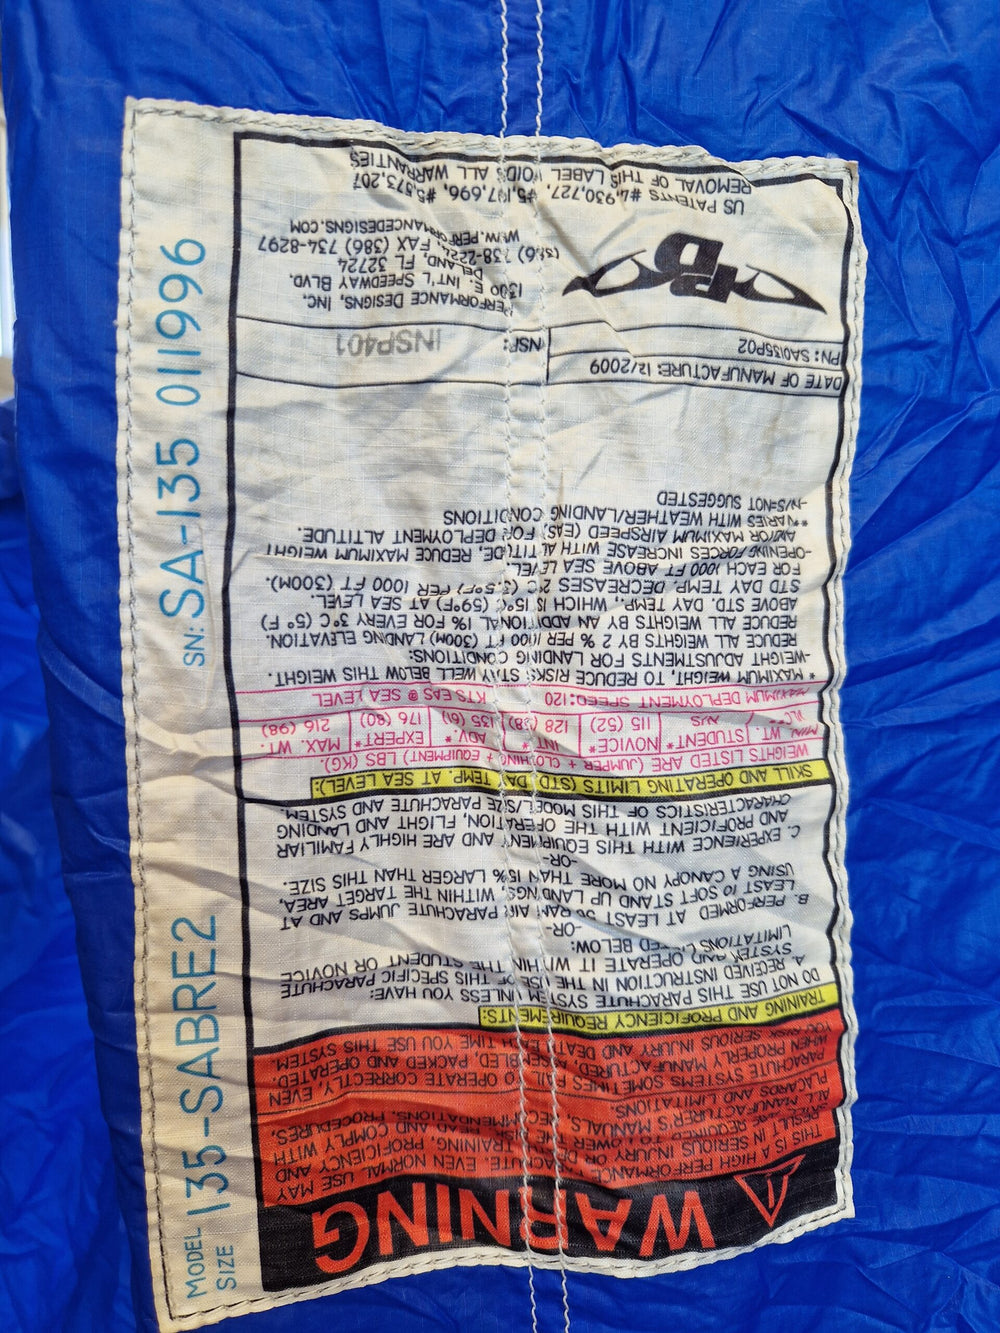 MODEL SIZE 135-SABRE2 SN: SA-135 011996
WARNING
THIS IS A HIGH PERFORMANCE PARACHUTE. EVEN NORMAL USE MAY
RESULT IN SERIOUS INJURY OR DEATH.
TO LOWER THE RISK, TRAINING, PROFICIENCY AND
ARE REQUIRED READ AND COMPLY WITH
ALL MANUFACTURER'S MANUALS, RECOMMENDATIONS, PROCEDURES,
PLACARDS AND LIMITATIONS.
PARACHUTE SYSTEMS SOMETIMES FAIL TO OPERATE CORRECTLY, EVEN
WHEN PROPERLY MANUFACTURED, ASSEMBLED, PACKED AND OPERATED.
YOU RISK SERIOUS INJURY AND DEATH EACH TIME YOU USE THIS SYSTEM.
TRAINING AND PROFICIENCY REQUIREMENTS:
DO NOT USE THIS PARACHUTE SYSTEM UNLESS YOU HAVE:
A. RECEIVED INSTRUCTION IN THE USE OF THIS SPECIFIC PARACHUTE
SYSTEM AND OPERATE IT WITHIN THE STUDENT OR NOVICE
LIMITATIONS LISTED BELOW:
-OR-
B. PERFORMED AT LEAST 50 RAM AIR PARACHUTE JUMPS AND AT
LEAST 10 SOFT STAND UP LANDINGS, WITHIN THE TARGET AREA,
USING A CANOPY NO MORE THAN 15% LARGER THAN THIS SIZE.
-OR-
C. EXPERIENCE WITH THIS EQUIPMENT AND ARE HIGHLY FAMILIAR
AND PROFICIENT WITH THE OPERATION, FLIGHT AND LANDING
CHARACTERISTICS OF THIS MODEL/SIZE PARACHUTE AND SYSTEM
SKILL AND OPERATING LIMITS (STD. DAY TEMP. AT SEA LEVEL):
WEIGHTS LISTED ARE (JUMPER + CLOTHING + EQUIPMENT) LBS (KG)
MIN. WT. STUDENT* NOVICE* INT.* ADV.* EXPERT* MAX. WT.
VL** N/S 115 (52) 128 (58) 135 (61) 176 (80) 216 (98)
MAXIMUM DEPLOYMENT SPEED: 120 KTS EAS @ SEA LEVEL
* MAXIMUM WEIGHT, TO REDUCE RISKS STAY WELL BELOW THIS WEIGHT.
-WEIGHT ADJUSTMENTS FOR LANDING CONDITIONS:
REDUCE ALL WEIGHTS BY 2 % PER 1000 FT (300M) LANDING ELEVATION.
REDUCE ALL WEIGHTS BY AN ADDITIONAL 1% FOR EVERY 3°C (5° F)
ABOVE STD. DAY TEMP., WHICH IS 15°C (59°F) AT SEA LEVEL.
STD DAY TEMP. DECREASES 2°C (3.5°F) PER 1000 FT (300M).
FOR EACH 1000 FT ABOVE SEA LEVEL.
-OPENING FORCES INCREASE WITH ALTITUDE, REDUCE MAXIMUM WEIGHT
AND/OR MAXIMUM AIRSPEED (EAS) FOR DEPLOYMENT ALTITUDE.
**VARIES WITH WEATHER/LANDING CONDITIONS
-N/S=NOT SUGGESTED
DATE OF MANUFACTURE: 12/2009
PN: SA0135P02 INSP: INSP401
PD
PERFORMANCE DESIGNS, INC.
1300 E. INT'L SPEEDWAY BLVD.
DELAND, FL 32724
(386) 738-2224, FAX (386) 734-8297
WWW.PERFORMANCEDESIGNS.COM
US PATENTS #4,930,727, #5,197,696, #5,573,207
REMOVAL OF THIS LABEL VOIDS ALL WARRANTIES